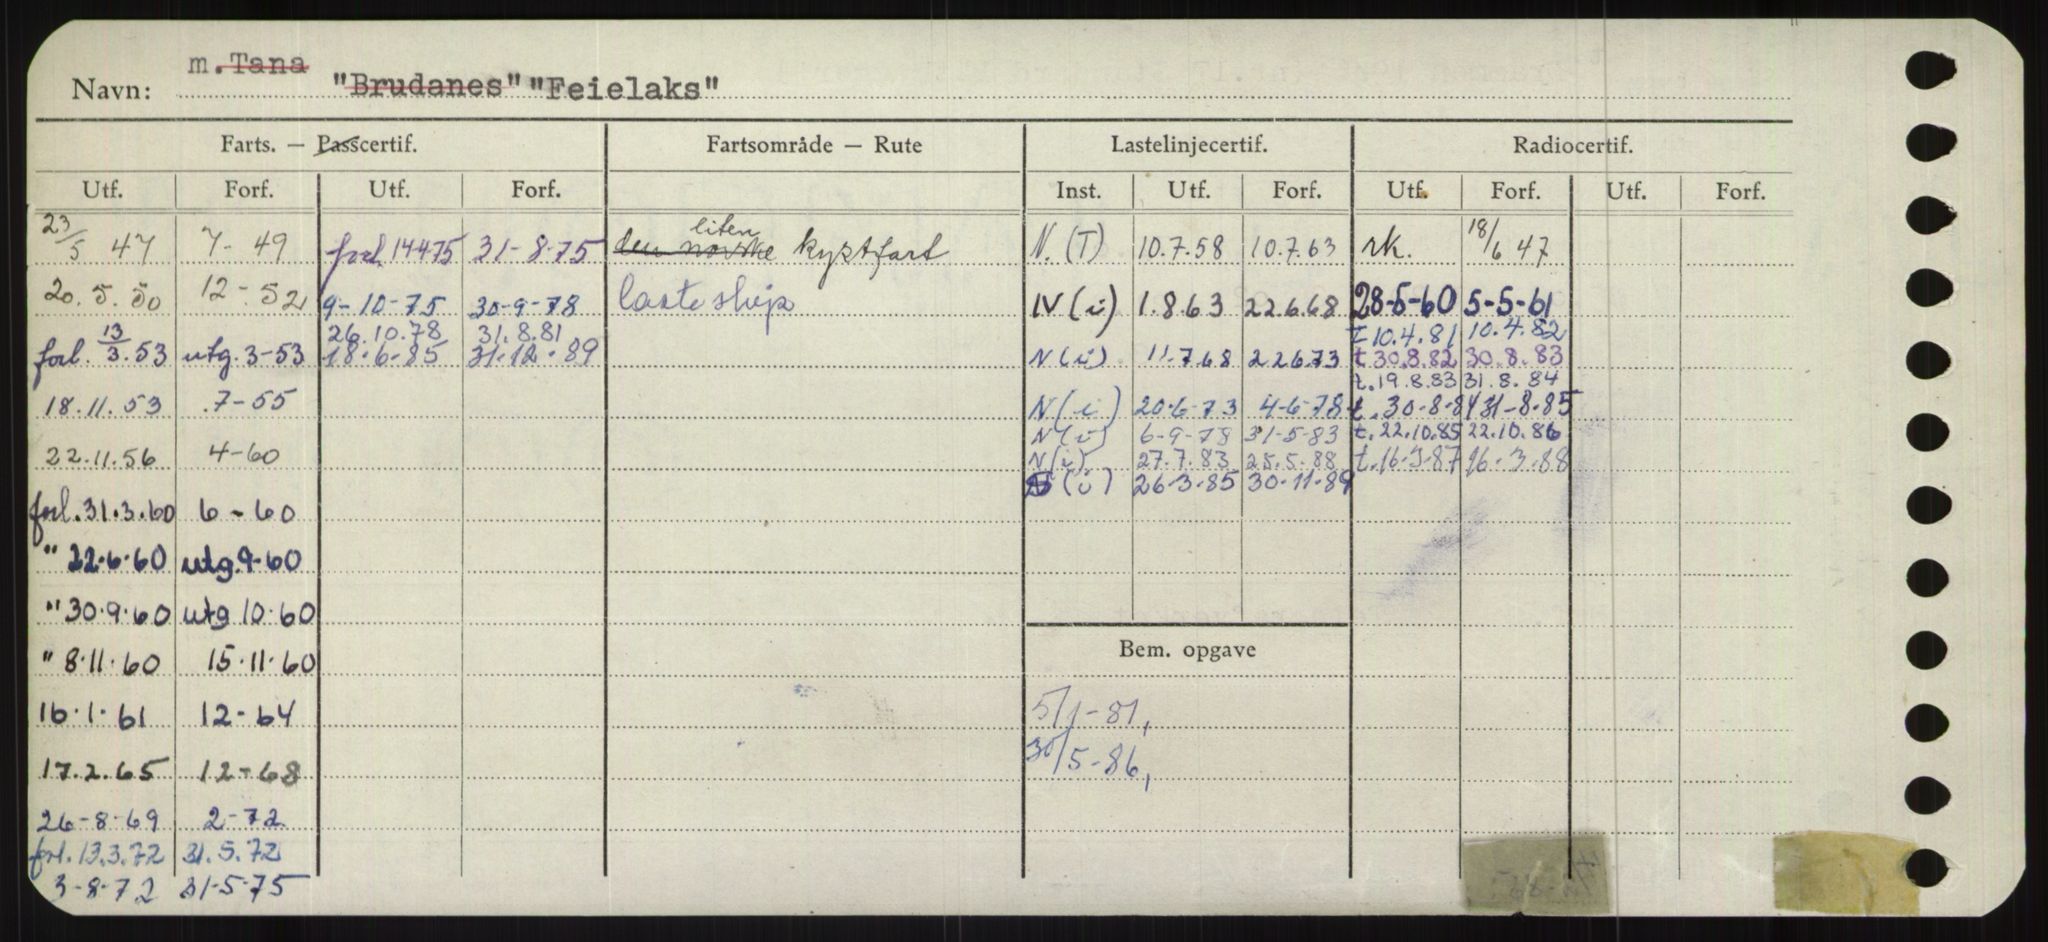 m. Tana
Navn: "Brudanes" "Feielaks"
Farts. — Passcertif. Fartsområde — Rute Lastelinjecertif. Radiocertif.
Utf. Forf. Utf. Forf. Inst. Utf. Forf. Utf. Forf. Utf. Forf.
liten
23/5 47 7-49 forl. 14475 31-8-75 den norske kystfart N. (T) 10.7.58 10.7.63 rk. 18/6 47
20.5.50 12-52 9-10-75 30-9-78 lasteskip IV (i) 1.8.63 22.6.68 28-5-60 5-5-61
26.10.78 31.8.81 t 10.4.81 10.4.82
forl. 13/3.53 utg. 3-53 18.6.85 31.12.89 N (i) 11.7.68 22673 t 30.8.82 30.8.83
t. 19.8.83 31.8.84
18.11.53 7-55 N (i) 20-6-73 4-6-78 t. 30-8-84 31-8-85
N (i) 6-9-78 31-5-83 t. 22.10.85 22.10.86
22.11.56 4-60 N (i) 27.7.83 25.5.88 t. 16-3-87 16.3.88
(i) 26.3.85 30.11.89
forl. 31.3.60 6-60
" 22.6.60 utg. 9-60
" 30.9.60 utg 10.60
" 8.11.60 15.11.60
Bem. opgave
16.1.61 12-64 5/1-81,
17.2.65 12-68 30/5-86,
26-8-69 2-72
forl. 13.3.72 31.5.72
3-8-72 31-5-75